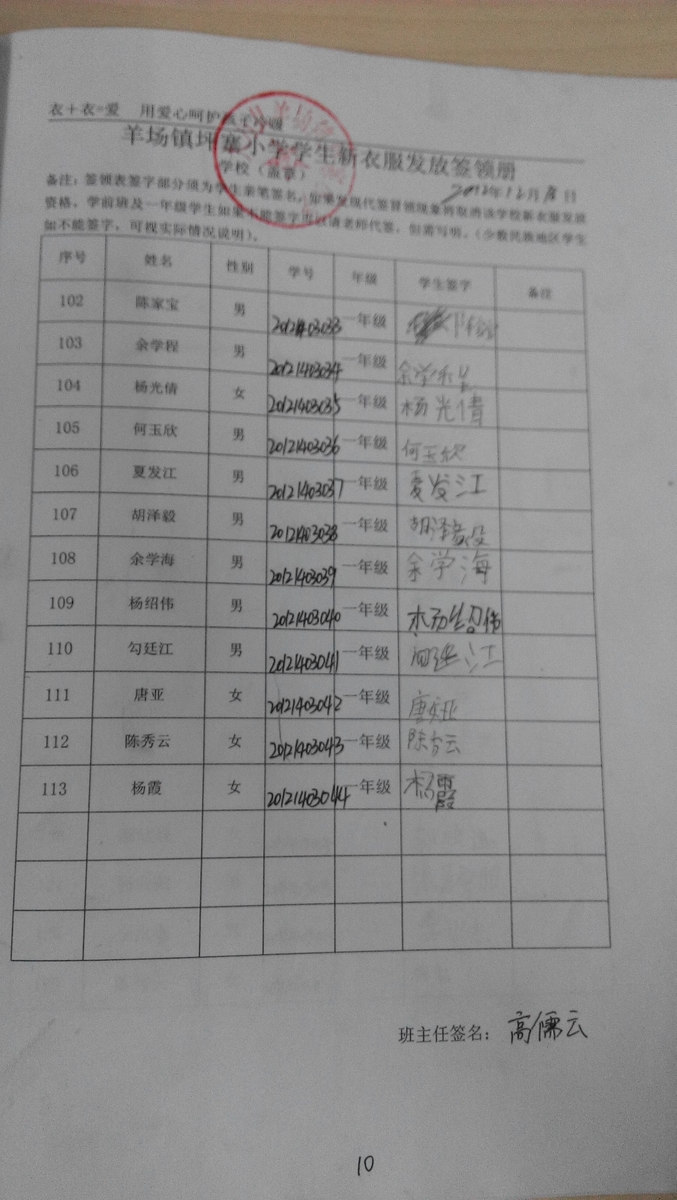 衣+衣=爱 用爱心呵护孩子冷暖
羊场镇坪寨小学学生新衣服发放签领册
学校(盖章)
2012年12月18日
备注:签领表签字部分须为学生亲笔签名,如果发现代签冒领现象将取消该学校新衣服发放
资格,学前班及一年级学生如果不能签字可以请老师代签,但需写明。(少数民族地区学生
如不能签字,可视实际情况说明)。
序号 姓名 性别 学号 年级 学生签字 备注
102 陈家宝 男 20121403033 一年级
103 余学程 男 20121403034 一年级 余学程
104 杨光倩 女 20121403035 一年级 杨光倩
105 何玉欣 男 20121403036 一年级 何玉欣
106 夏发江 男 20121403037 一年级 夏发江
107 胡泽毅 男 20121403038 一年级 胡泽毅
108 余学海 男 20121403039 一年级 余学海
109 杨绍伟 男 20121403040 一年级 杨绍伟
110 勾廷江 男 20121403041 一年级 勾廷江
111 唐亚 女 20121403042 一年级 唐亚
112 陈秀云 女 20121403043 一年级 陈秀云
113 杨霞 女 20121403044 一年级 杨霞
班主任签名: 高儒云
10